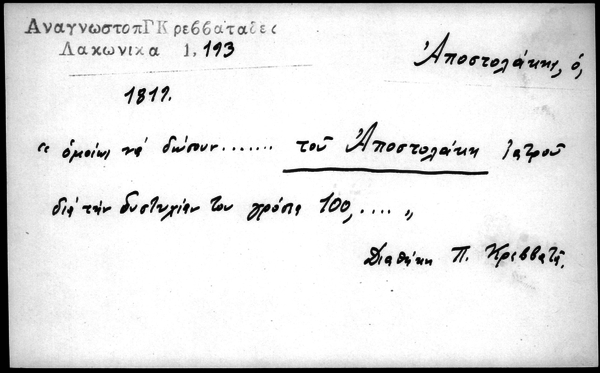 ΑναγνωστοπΓΚρεββαταδες
Λακωνικα 1, 193
Ἀποστολάκης, ὁ,
1819.
“ ὁμοίως νά δώσουν....... τοῦ Ἀποστολάκη ἰατροῦ
διά τήν δυστυχίαν του γρόσια 100,.... „
Διαθήκη Π. Κρεββατᾶ.